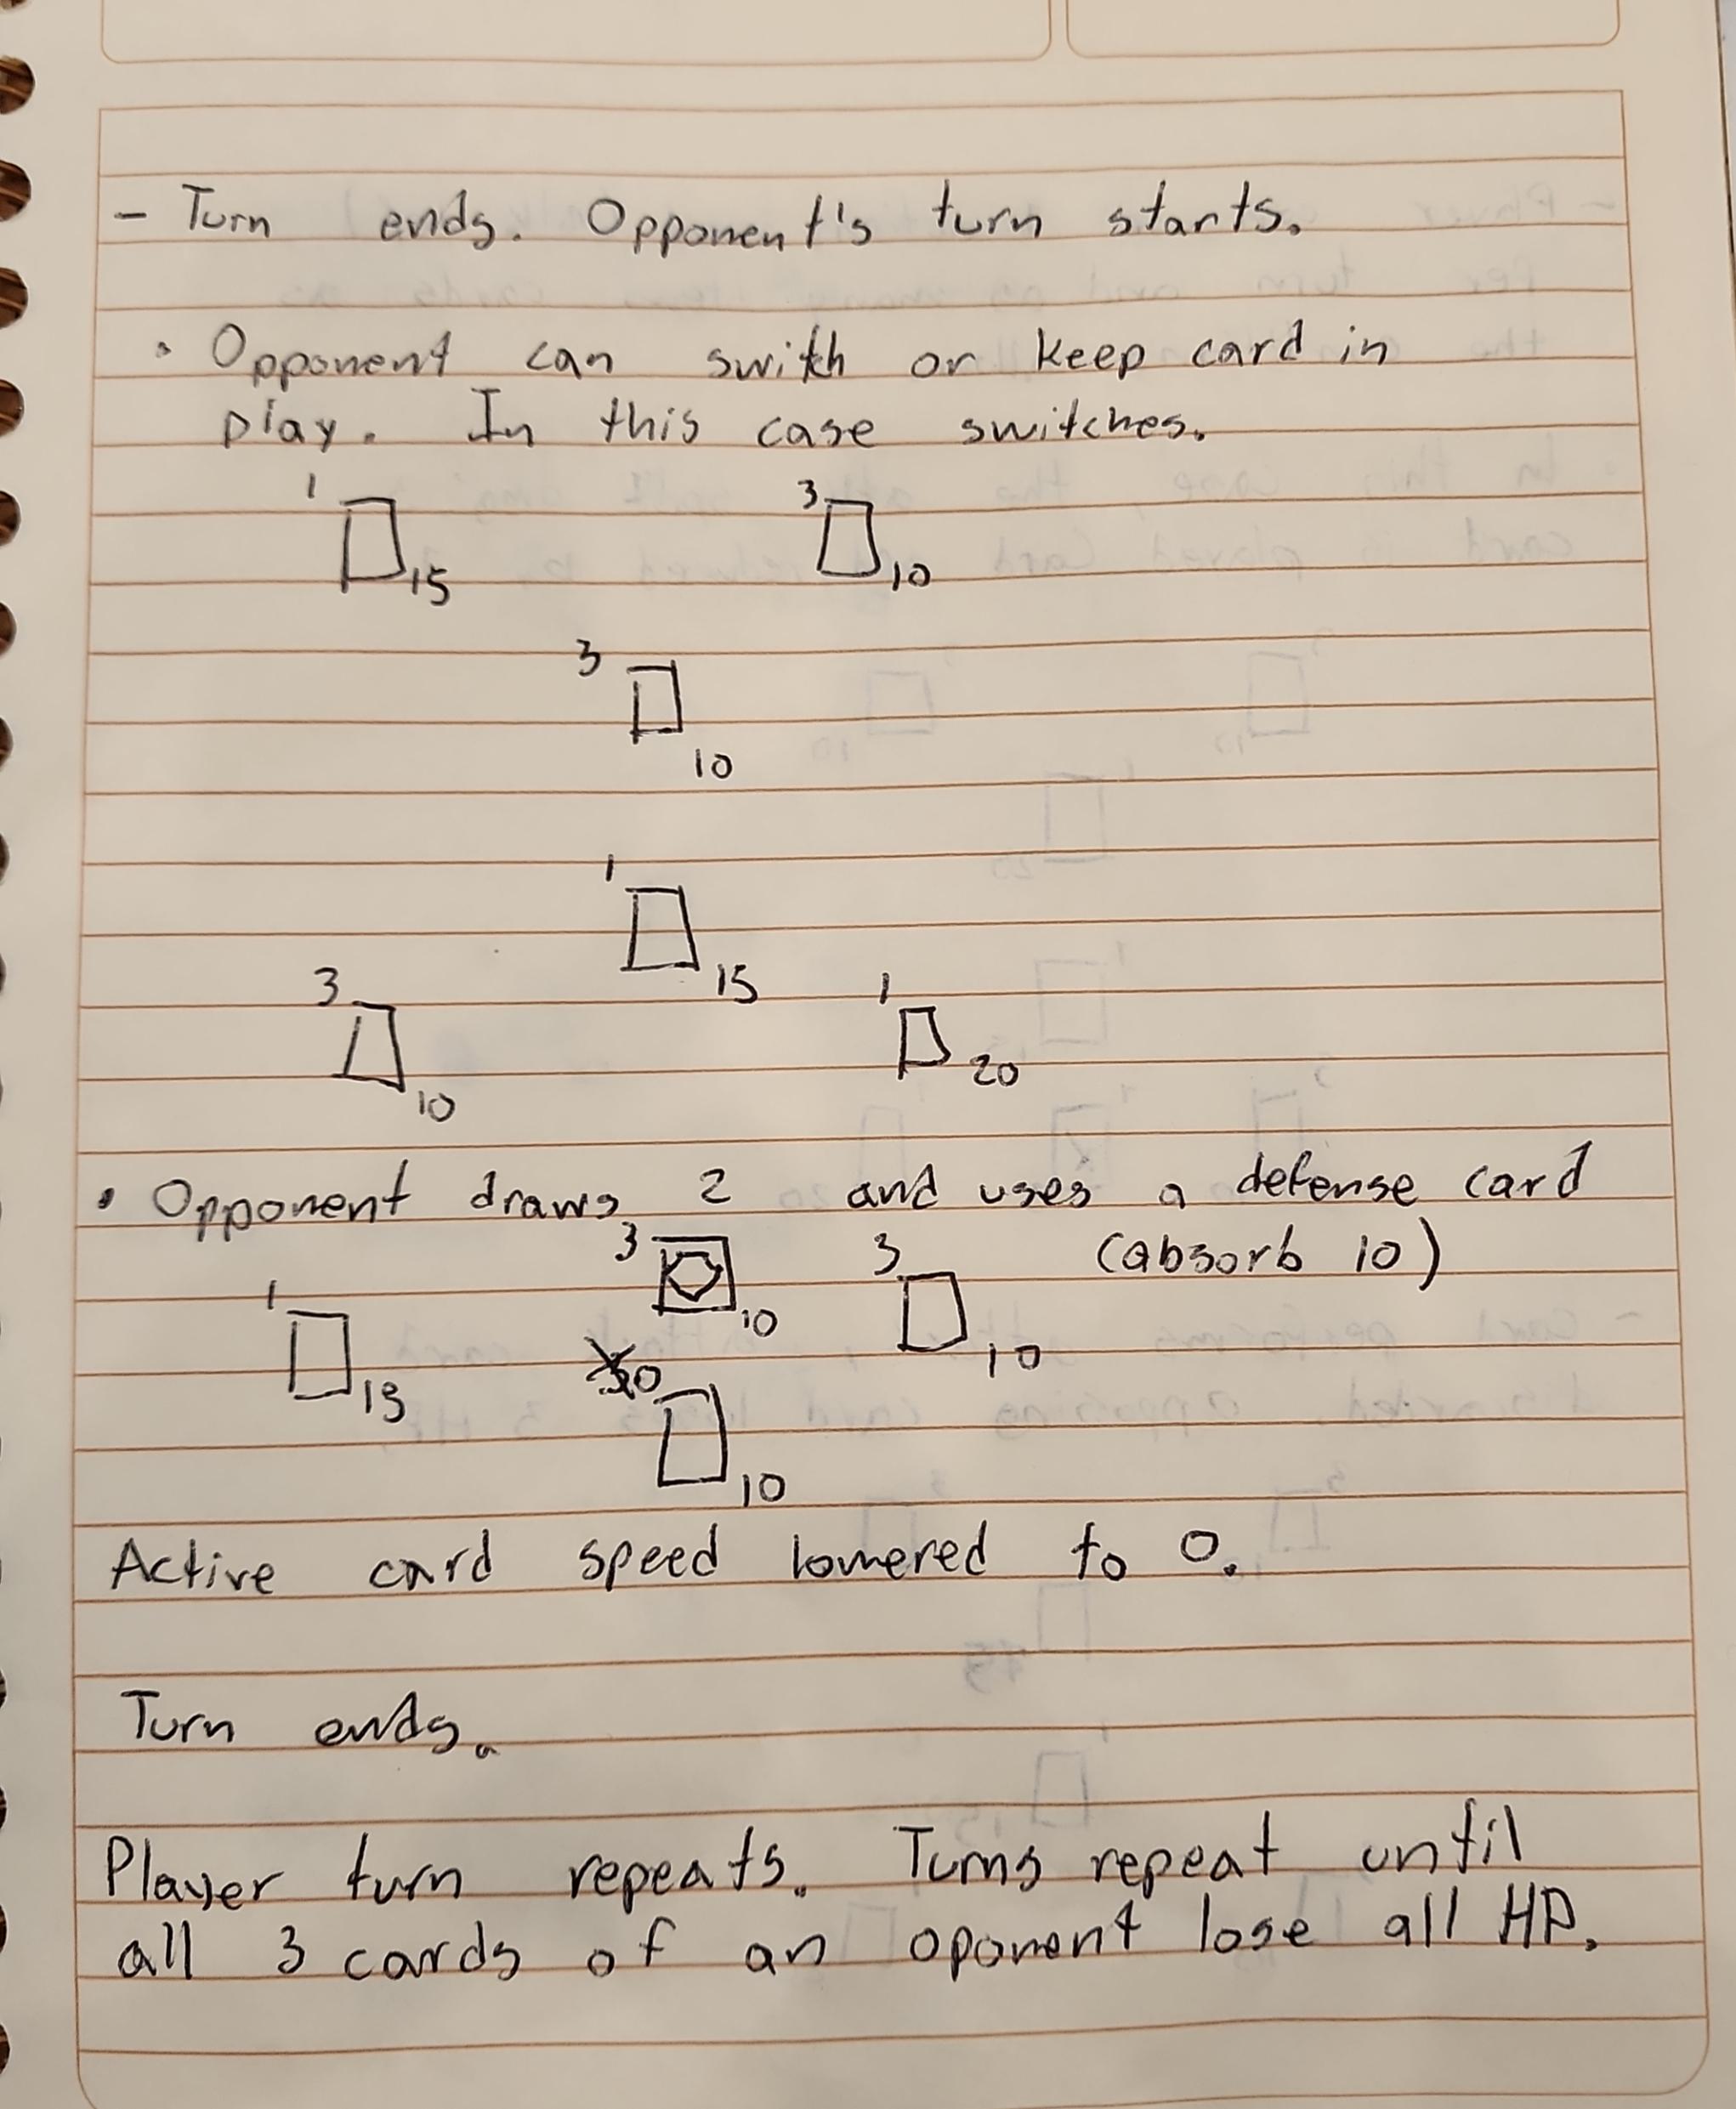 - Turn ends. Opponent's turn starts.
• Opponent can swith or keep card in
play. In this case switches.
1 15 3 10
3 10
1 15
3 10 1 20
• Opponent draws 2 and uses a defense card
(absorb 10)
3 10 3 10
1 15
0 10
Active card speed lowered to 0.
Turn ends.
Player turn repeats. Turns repeat until
all 3 cards of an oponent lose all HP.